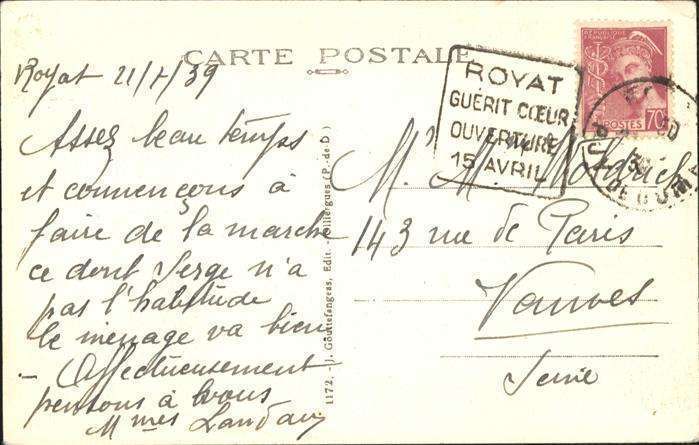 CARTE POSTALE
Royat 21/7/39
Assez beau temps
et commençons à
faire de la marche
ce dont Serge n'a
pas l'habitude
le menage va bien
- Affectueusement
pensons à vous
Mmes Landau
1172. - J. Gouttefangeas, Edit. - Olliergues (P.-de-D.)
ROYAT
GUÉRIT CŒUR
OUVERTURE
15 AVRIL
RÉPUBLIQUE FRANÇAISE
POSTES 70c
M. M.
143 rue de Paris
Vanves
Seine